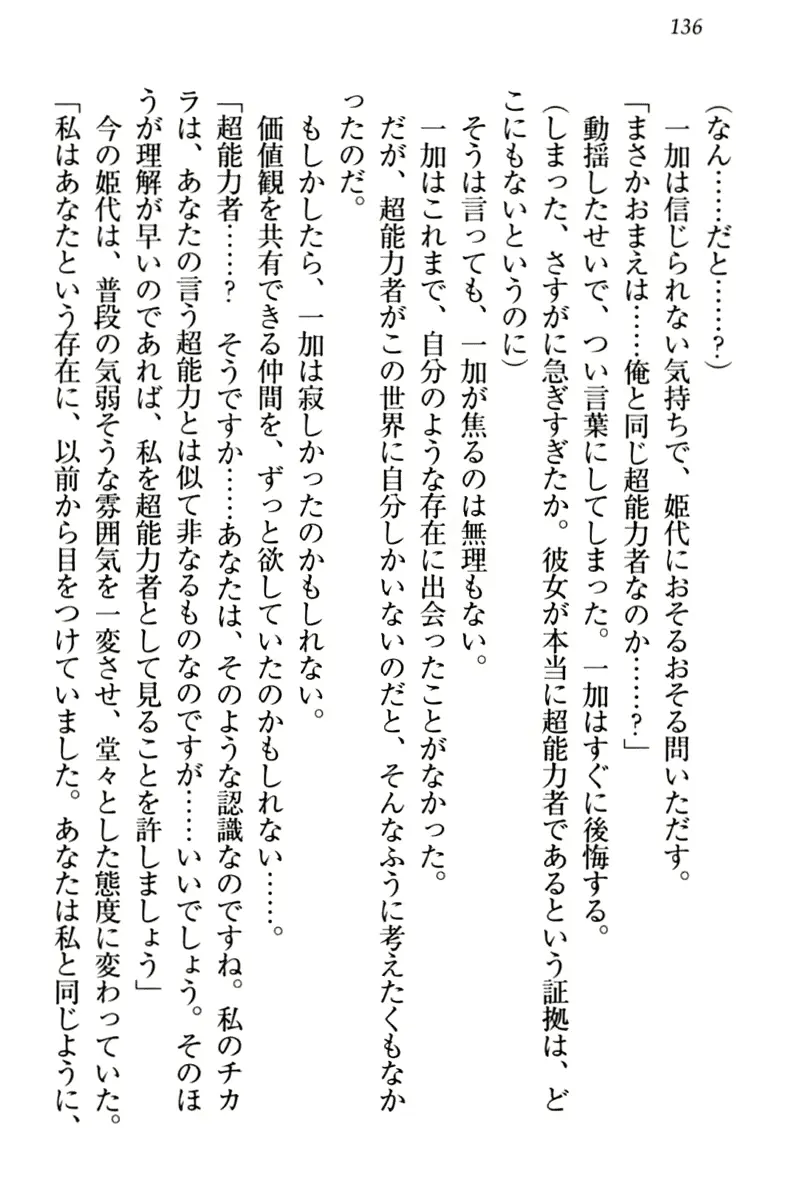 136
（なん……だと……？）
　一加は信じられない気持ちで、姫代におそるおそる問いただす。
「まさかおまえは……俺と同じ超能力者なのか……？」
　動揺したせいで、つい言葉にしてしまった。一加はすぐに後悔する。
（しまった、さすがに急ぎすぎたか。彼女が本当に超能力者であるという証拠は、ど
こにもないというのに）
　そうは言っても、一加が焦るのは無理もない。
　一加はこれまで、自分のような存在に出会ったことがなかった。
　だが、超能力者がこの世界に自分しかいないのだと、そんなふうに考えたくもなか
ったのだ。
　もしかしたら、一加は寂しかったのかもしれない。
　価値観を共有できる仲間を、ずっと欲していたのかもしれない……。
「超能力者……？　そうですか……あなたは、そのような認識なのですね。私のチカ
ラは、あなたの言う超能力とは似て非なるものなのですが……いいでしょう。そのほ
うが理解が早いのであれば、私を超能力者として見ることを許しましょう」
　今の姫代は、普段の気弱そうな雰囲気を一変させ、堂々とした態度に変わっていた。
「私はあなたという存在に、以前から目をつけていました。あなたは私と同じように、